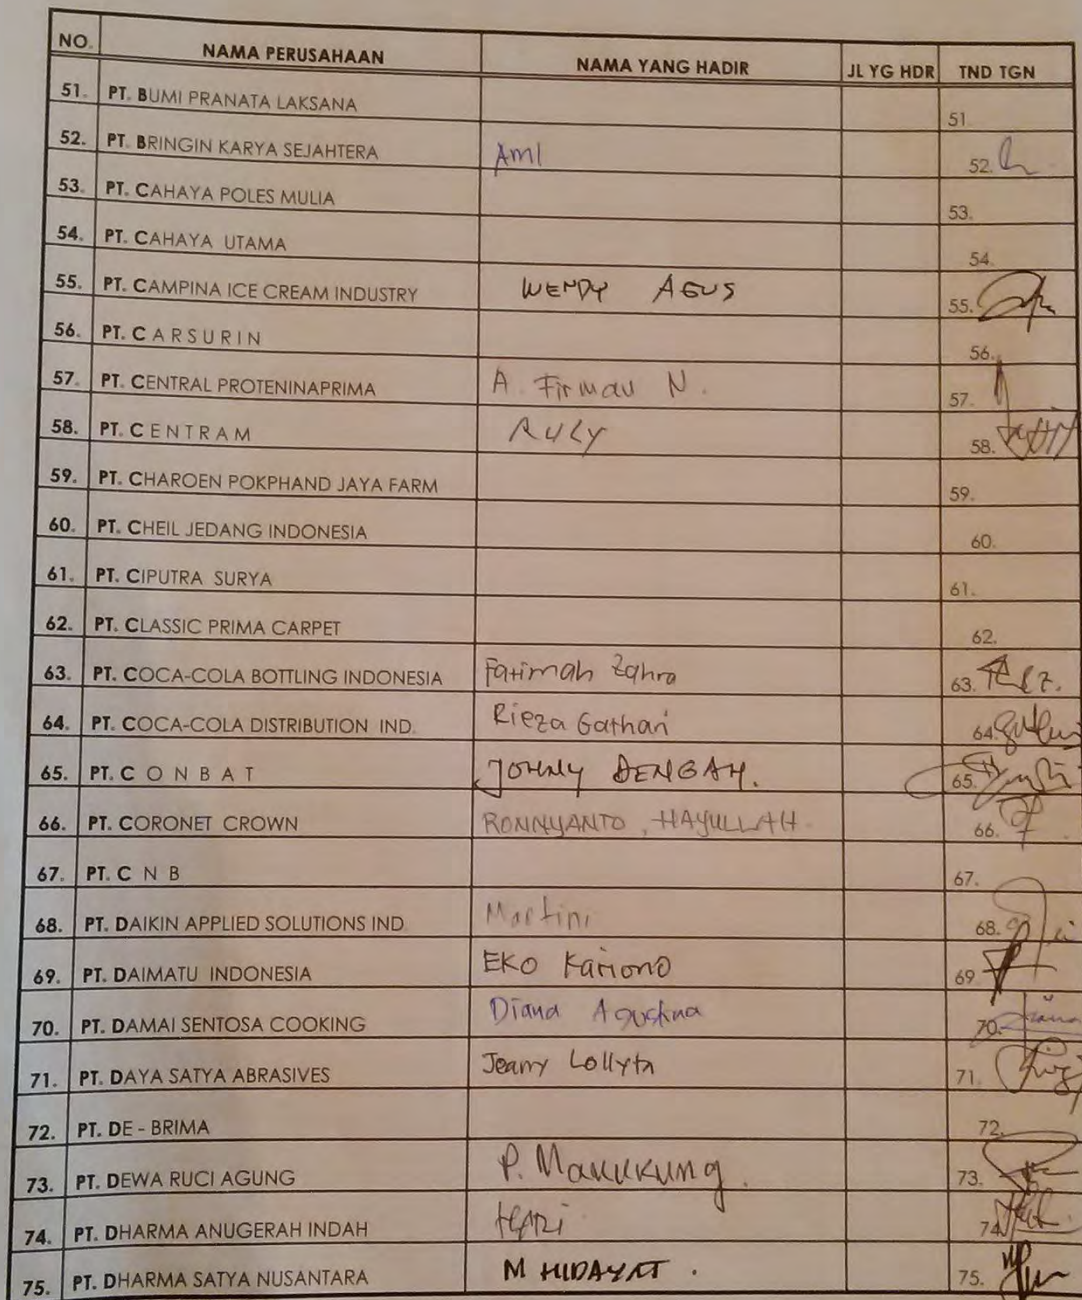 NO. NAMA PERUSAHAAN NAMA YANG HADIR JL YG HDR TND TGN
51. PT. BUMI PRANATA LAKSANA 51.
52. PT. BRINGIN KARYA SEJAHTERA AMI 52.
53. PT. CAHAYA POLES MULIA 53.
54. PT. CAHAYA UTAMA 54.
55. PT. CAMPINA ICE CREAM INDUSTRY WENDY AGUS 55.
56. PT. C A R S U R I N 56.
57. PT. CENTRAL PROTENINAPRIMA A. Firmau N. 57.
58. PT. C E N T R A M RULY 58.
59. PT. CHAROEN POKPHAND JAYA FARM 59.
60. PT. CHEIL JEDANG INDONESIA 60.
61. PT. CIPUTRA SURYA 61.
62. PT. CLASSIC PRIMA CARPET 62.
63. PT. COCA-COLA BOTTLING INDONESIA Fatimah Zahra 63.
64. PT. COCA-COLA DISTRIBUTION IND. Rieza Gathari 64.
65. PT. C O N B A T JOHNY DENGAH. 65.
66. PT. CORONET CROWN RONNYANTO, HAYULLAH 66.
67. PT. C N B 67.
68. PT. DAIKIN APPLIED SOLUTIONS IND Martini 68.
69. PT. DAIMATU INDONESIA EKO Kariono 69
70. PT. DAMAI SENTOSA COOKING Diana Agustina 70.
71. PT. DAYA SATYA ABRASIVES Jeany Lollyta 71.
72. PT. DE - BRIMA 72.
73. PT. DEWA RUCI AGUNG P. Manukung. 73.
74. PT. DHARMA ANUGERAH INDAH HARI 74.
75. PT. DHARMA SATYA NUSANTARA M HIDAYAT. 75.